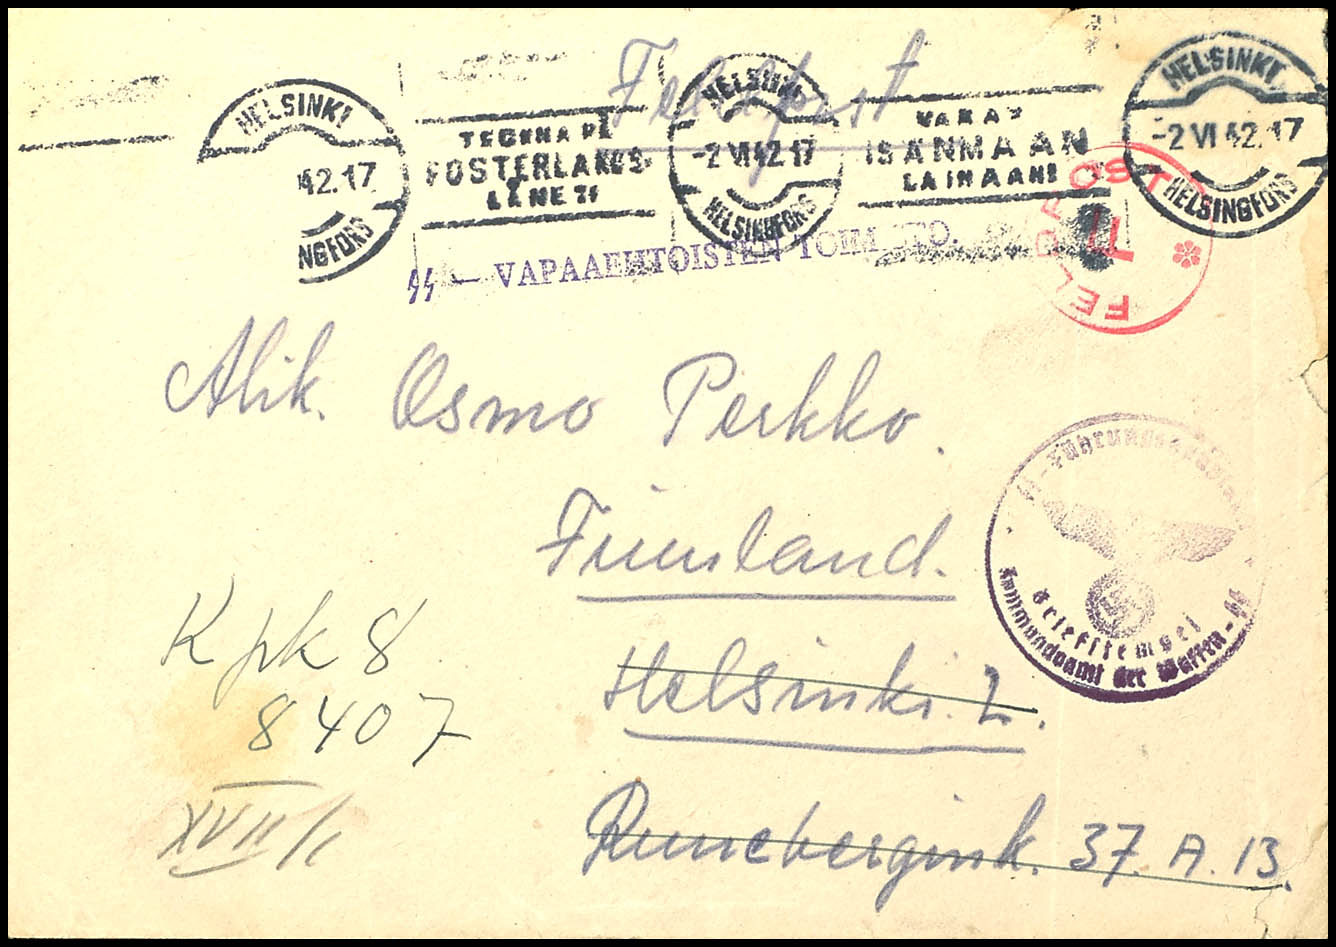 Feldpost
HELSINKI
42.17
NGFORS
TECKNA PÅ
FOSTERLANDS-
LÅNET!
HELSINKI
-2 VI 42.17
HELSINGFORS
ISÄNMAAN
LAINAAN!
HELSINKI
-2 VI 42.17
HELSINGFORS
FELDPOST
F
SS — VAPAAEHTOISTEN TOIMISTO.
Alik. Osmo Perkko.
Finnland.
Helsinki. 2.
Runebergink. 37. A. 13.
Kpk 8
8407
XVII/
SS-Führungshauptamt
Briefstempel
Kommandoamt der Waffen-SS